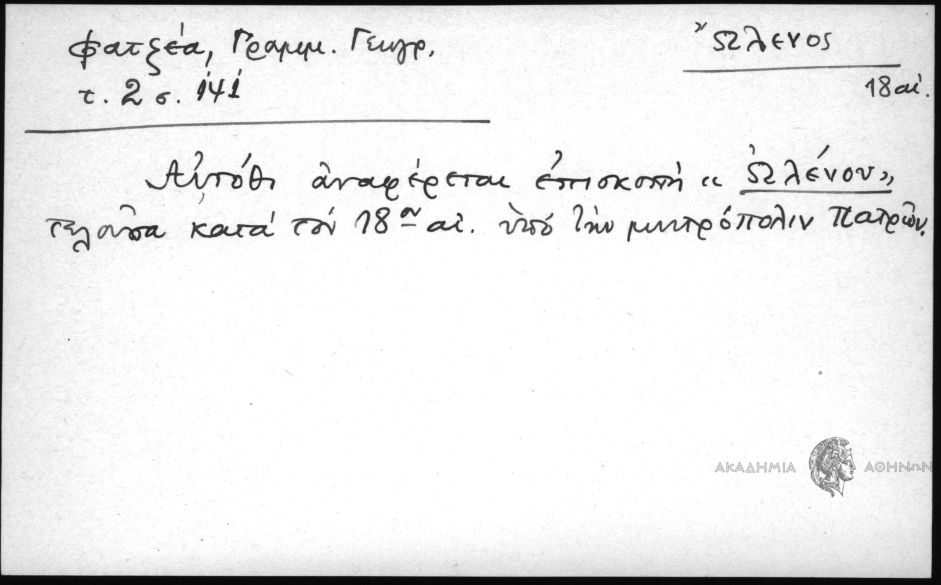 Φατζέα, Γραμμ. Γεωγρ.
τ. 2 σ. 141
Ὤλενος
18 αἰ.
Αὐτόθι ἀναφέρεται ἐπισκοπή « Ὠλένου»,
τελοῦσα κατά τόν 18ον αἰ. ὑπό τήν μητρόπολιν Πατρῶν.
ΑΚΑΔΗΜΙΑ ΑΘΗΝΩΝ